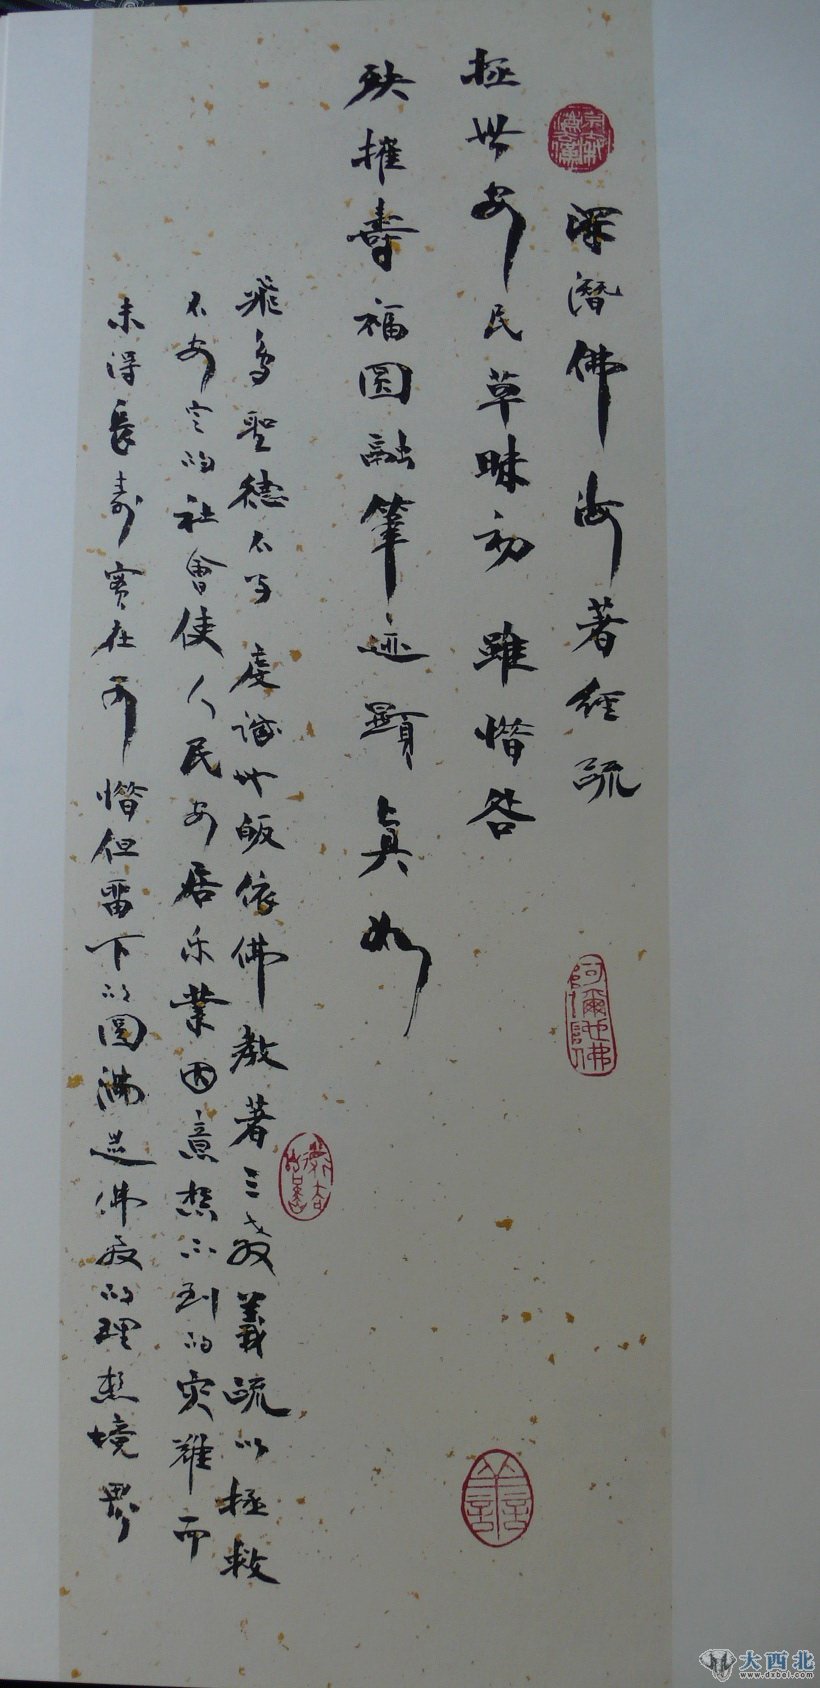 深潛佛海著經疏
拯世安民草昧初雖惜咎
殃摧壽福圓融筆迹顯真如
飛鳥聖德不多虔誠皈依佛教著三教義疏以拯救
不安定的社會使人民安居乐業因意想不到的灾難而
未得長壽實在可惜但留下的圓滿是佛教的理想境界
阿彌陀佛
大西北
www.dxbei.com